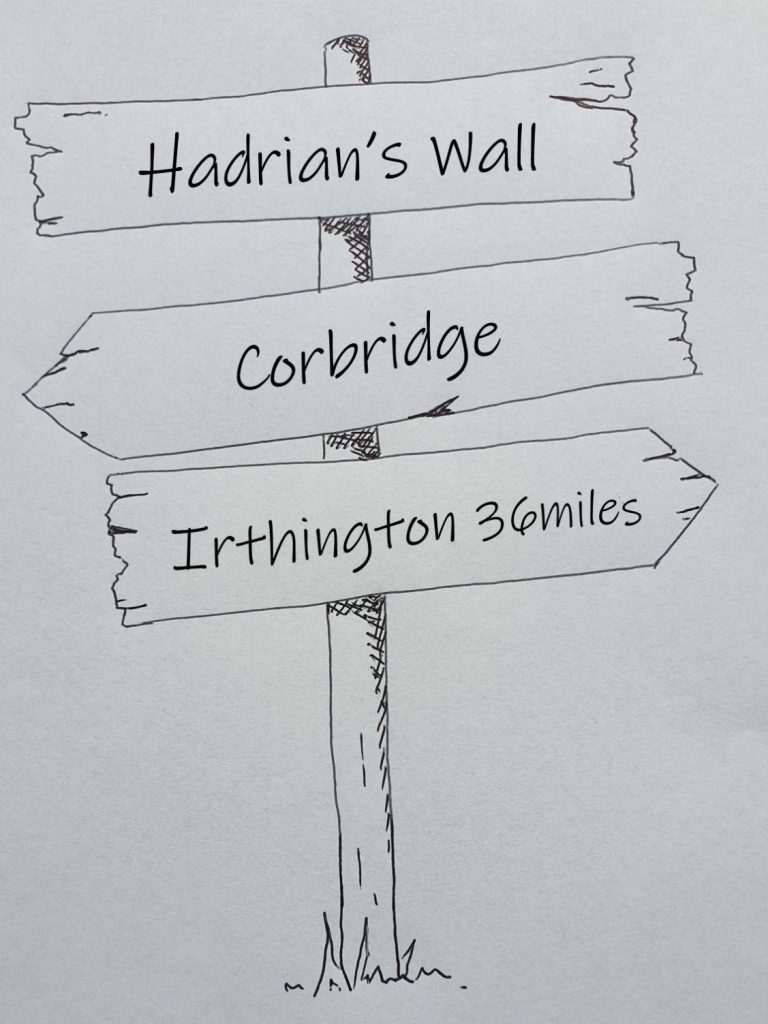 Hadrian's Wall
Corbridge
Irthington 36miles